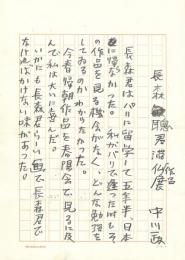 長森 聰君滞仏作品展 中川一政
長森君はパリに留学して五年半、日本
に帰らなかった。私がパリで逢った時もそ
の作品を見る機会がなく、どんな勉強を
しておるのかわからなかった。
今春帰朝作品を春陽会で見るに及
んで私は大いに喜んだ。
いかにも長森君らしい画で長森君で
なければかけない味があった。